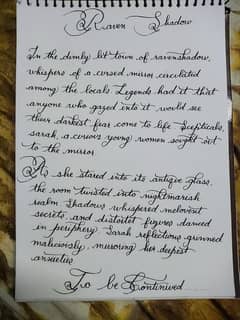 Raven Shadow
In the dimly lit town of ravenshadow,
whispers of a cursed mirror circulated
among the locals Legends had it thirt
anyone who gazed into it would see
their darkest fear come to life Scepticals,
sarah, a curiovs young women sought out
to the mirror
As she stared into its antique glass,
the room twisted into nightmarish
realm Shadows whispered melovent
secrets, and distortet figures danced
in periphery Sarah reflections grinned
maliciously, mirroring her deepest
anxieties
To be Continived